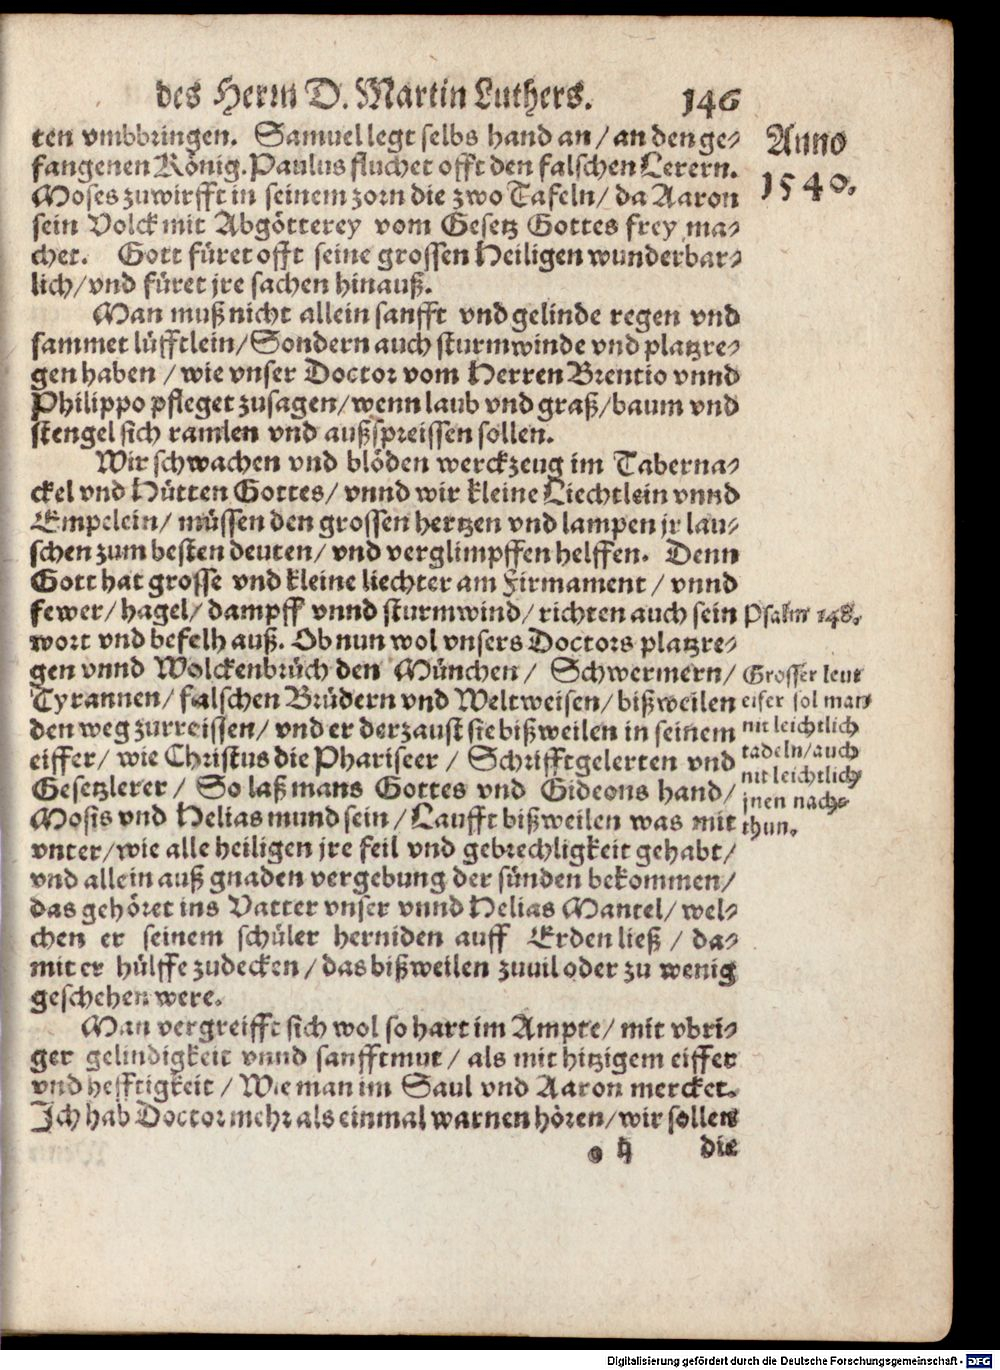 des Herrn D. Martin Luthers. 146
ten vmbbringen. Samuel legt selbs hand an / an den ge-
fangenen König. Paulus fluchet offt den falschen Lerern.
Moses zuwirfft in seinem zorn die zwo Tafeln / da Aaron
sein Volck mit Abgötterey vom Gesetz Gottes frey ma-
chet. Gott füret offt seine grossen Heiligen wunderbar-
lich / vnd füret jre sachen hinauß.
Man muß nicht allein sanfft vnd gelinde regen vnd
sammet lüfftlein / Sondern auch sturmwinde vnd platzre-
gen haben / wie vnser Doctor vom Herren Brentio vnnd
Philippo pfleget zusagen / wenn laub vnd graß / baum vnd
stengel sich ramlen vnd außspreissen sollen.
Wir schwachen vnd blöden werckzeug im Taberna-
ckel vnd Hütten Gottes / vnnd wir kleine Liechtlein vnnd
Empelein / müssen den grossen hertzen vnd lampen jr lau-
schen zum besten deuten / vnd verglimpffen helffen. Denn
Gott hat grosse vnd kleine liechter am Firmament / vnnd
fewer / hagel / dampff vnnd sturmwind / richten auch sein
wort vnd befelh auß. Ob nun wol vnsers Doctors platzre-
gen vnnd Wolckenbrüch den München / Schwermern /
Tyrannen / falschen Brüdern vnd Weltweisen / bißweilen
den weg zurreissen / vnd er derzaust sie bißweilen in seinem
eiffer / wie Christus die Phariseer / Schrifftgelerten vnd
Gesetzlerer / So laß mans Gottes vnd Gideons hand /
Mosis vnd Helias mund sein / Laufft bißweilen was mit
vnter / wie alle heiligen jre feil vnd gebrechligkeit gehabt /
vnd allein auß gnaden vergebung der sünden bekommen /
das gehöret ins Vatter vnser vnnd Helias Mantel / wel-
chen er seinem schüler herniden auff Erden ließ / da-
mit er hülffe zudecken / das bißweilen zuuil oder zu wenig
geschehen were.
Man vergreifft sich wol so hart im Ampte / mit vbri-
ger gelindigkeit vnnd sanfftmut / als mit hitzigem eiffer
vnd hefftigkeit / Wie man im Saul vnd Aaron mercket.
Ich hab Doctor mehr als einmal warnen hören / wir sollen
ij die
Anno
1540.
Psalm 148.
Grosser leut
eifer sol man
nit leichtlich
tadeln / auch
nit leichtlich
jnen nach-
thun.
Digitalisierung gefördert durch die Deutsche Forschungsgemeinschaft - DFG